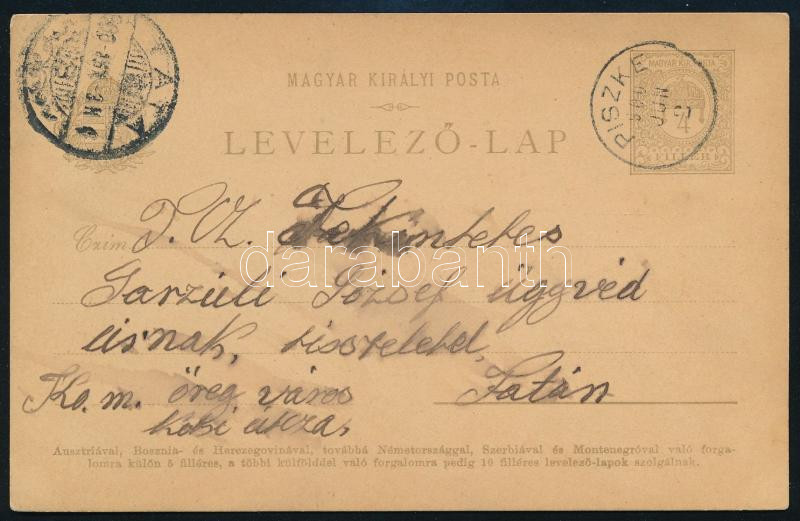 TATA
PISZKE
900
JUN
MAGYAR KIRÁLYI POSTA
MAGYAR KIR. POSTA
4
FILLÉR
LEVELEZŐ-LAP
Czim T. Cz. Tekintetes
József ügyvéd
urnak, tisztelettel,
Ko. m. öreg város Tatán
utcza,
darabanth
Ausztriával, Bosznia- és Herczegovinával, továbbá Németországgal, Szerbiával és Montenegróval való forga-
lomra külön 5 filléres, a többi külfölddel való forgalomra pedig 10 filléres levelező-lapok szolgálnak.